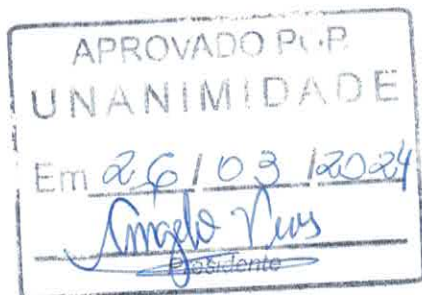 APROVADO POR
UNANIMIDADE
Em 26/03/2024
Angelo
Presidente